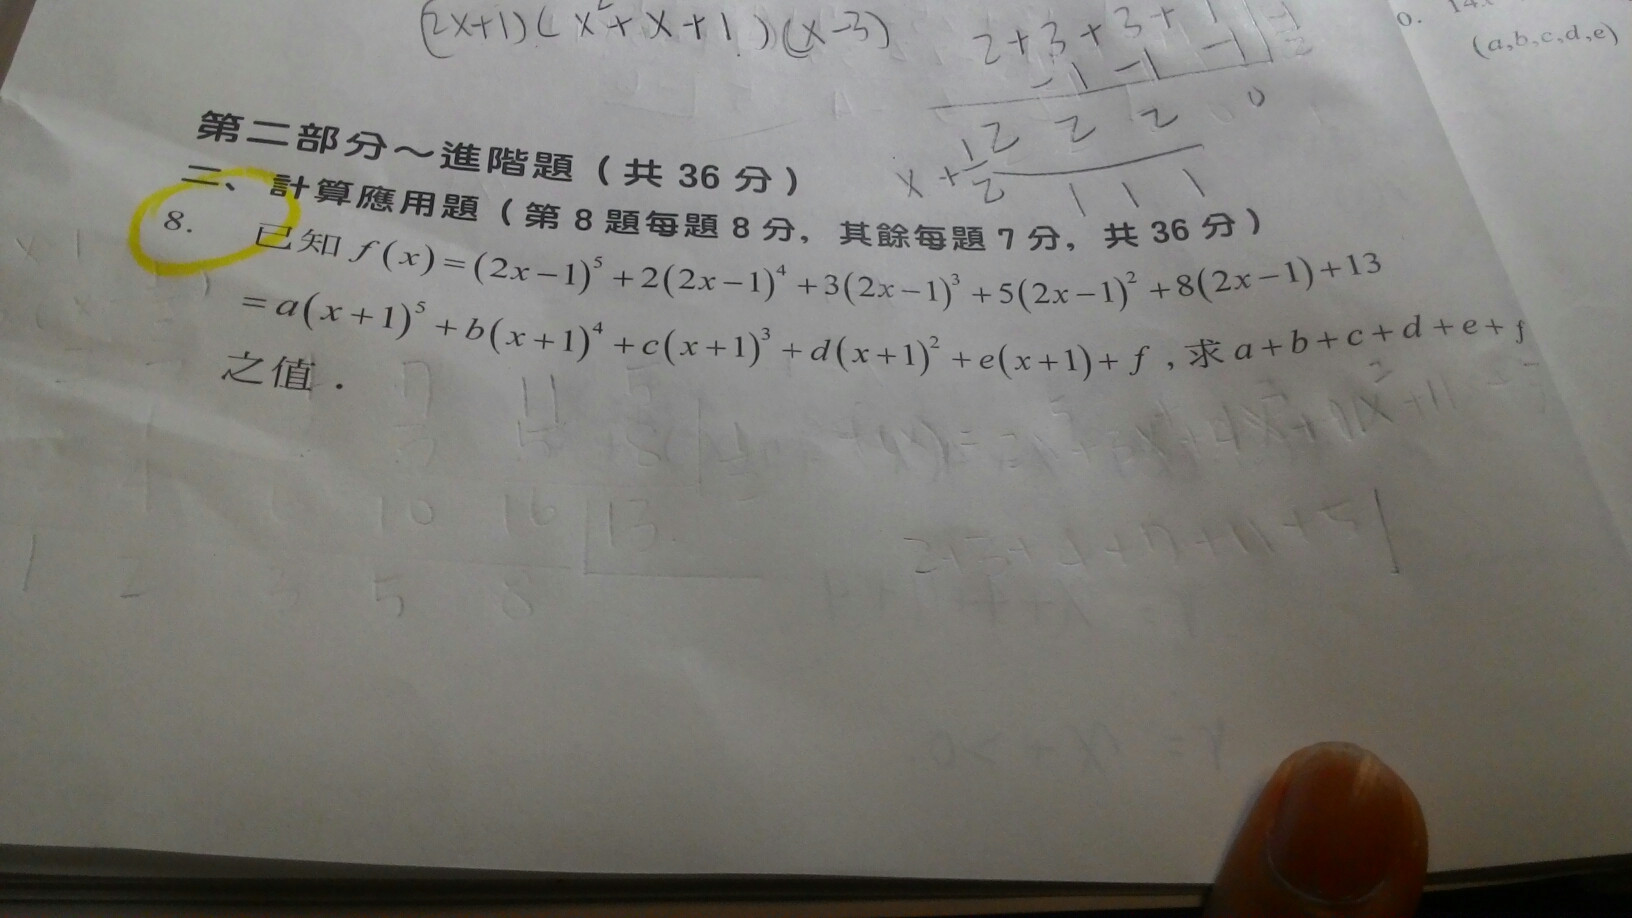 (2x+1)(x²+x+1)(x-3)
2+3+3+1
-1 -1 -1
2 2 2 0
x+1/2
1 1 1
(a,b,c,d,e)
第二部分～進階題（共 36 分）
二、計算應用題（第 8 題每題 8 分，其餘每題 7 分，共 36 分）
8. 已知 f(x)=(2x−1)⁵+2(2x−1)⁴+3(2x−1)³+5(2x−1)²+8(2x−1)+13
=a(x+1)⁵+b(x+1)⁴+c(x+1)³+d(x+1)²+e(x+1)+f，求 a+b+c+d+e+f
之值．
10 16 13
1 2 3 5 8